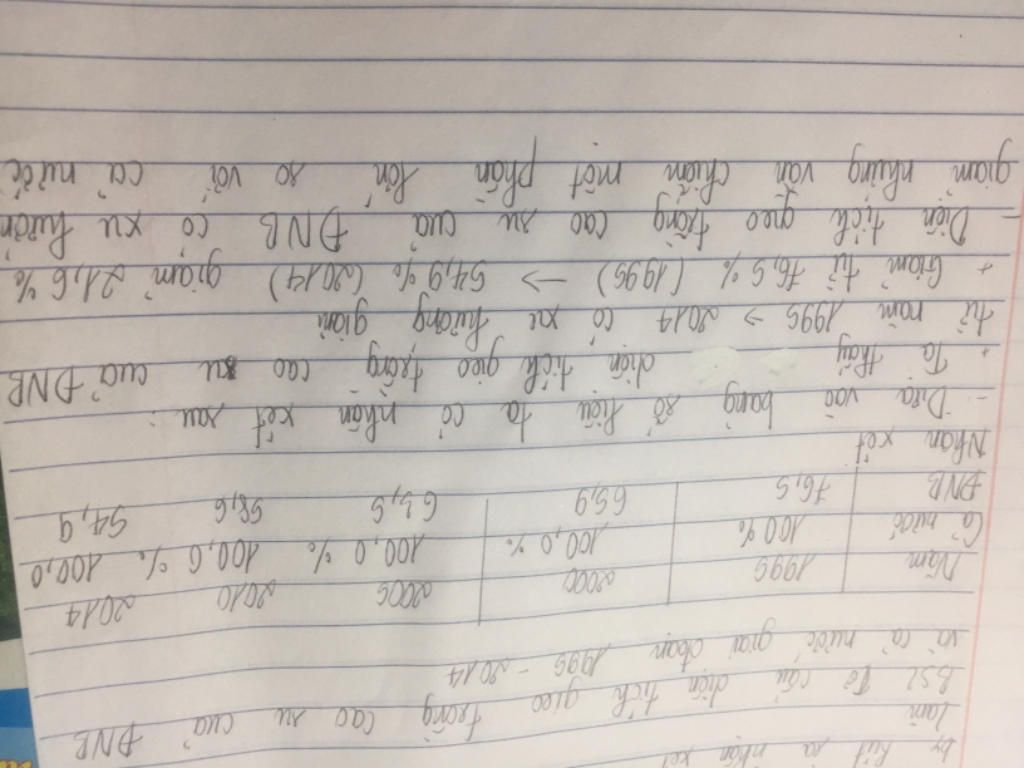 b, rút ra nhận xét
làm
BSL Tơ cấu diện tích gieo trồng cao su của ĐNB
và cả nước giai đoạn 1995 - 2014
Năm 1995 2000 2005 2010 2014
Cả nước 100% 100,0% 100,0% 100,0% 100,0
ĐNB 76,5 65,9 63,5 58,6 54,9
Nhận xét
- Dựa vào bảng số liệu ta có nhận xét sau :
+ Ta thấy diện tích gieo trồng cao su của ĐNB
từ năm 1995 → 2014 có xu hướng giảm
+ Giảm từ 76,5% (1995) → 54,9% (2014) giảm 21,6%
- Diện tích gieo trồng cao su của ĐNB có xu hướn
giảm nhưng vẫn chiếm một phần lớn so với cả nước